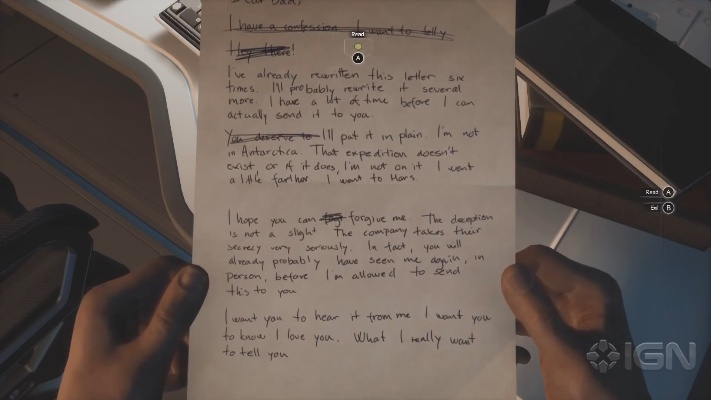 Dear Dad,
I have a confession I want to tell y
Hey there!
I've already rewritten this letter six
times. I'll probably rewrite it several
more. I have a lot of time before I can
actually send it to you.
You deserve to I'll put it in plain. I'm not
in Antarctica. That expedition doesn't
exist or if it does, I'm not on it I went
a little farther I went to Mars.
I hope you can forgive me. The deception
is not a slight The company takes their
secrecy very seriously. In fact, you will
already probably have seen me again, in
person, before I'm allowed to send
this to you
I want you to hear it from me I want you
to know I love you. What I really want
to tell you
Read
A
Read A
Exit B
IGN